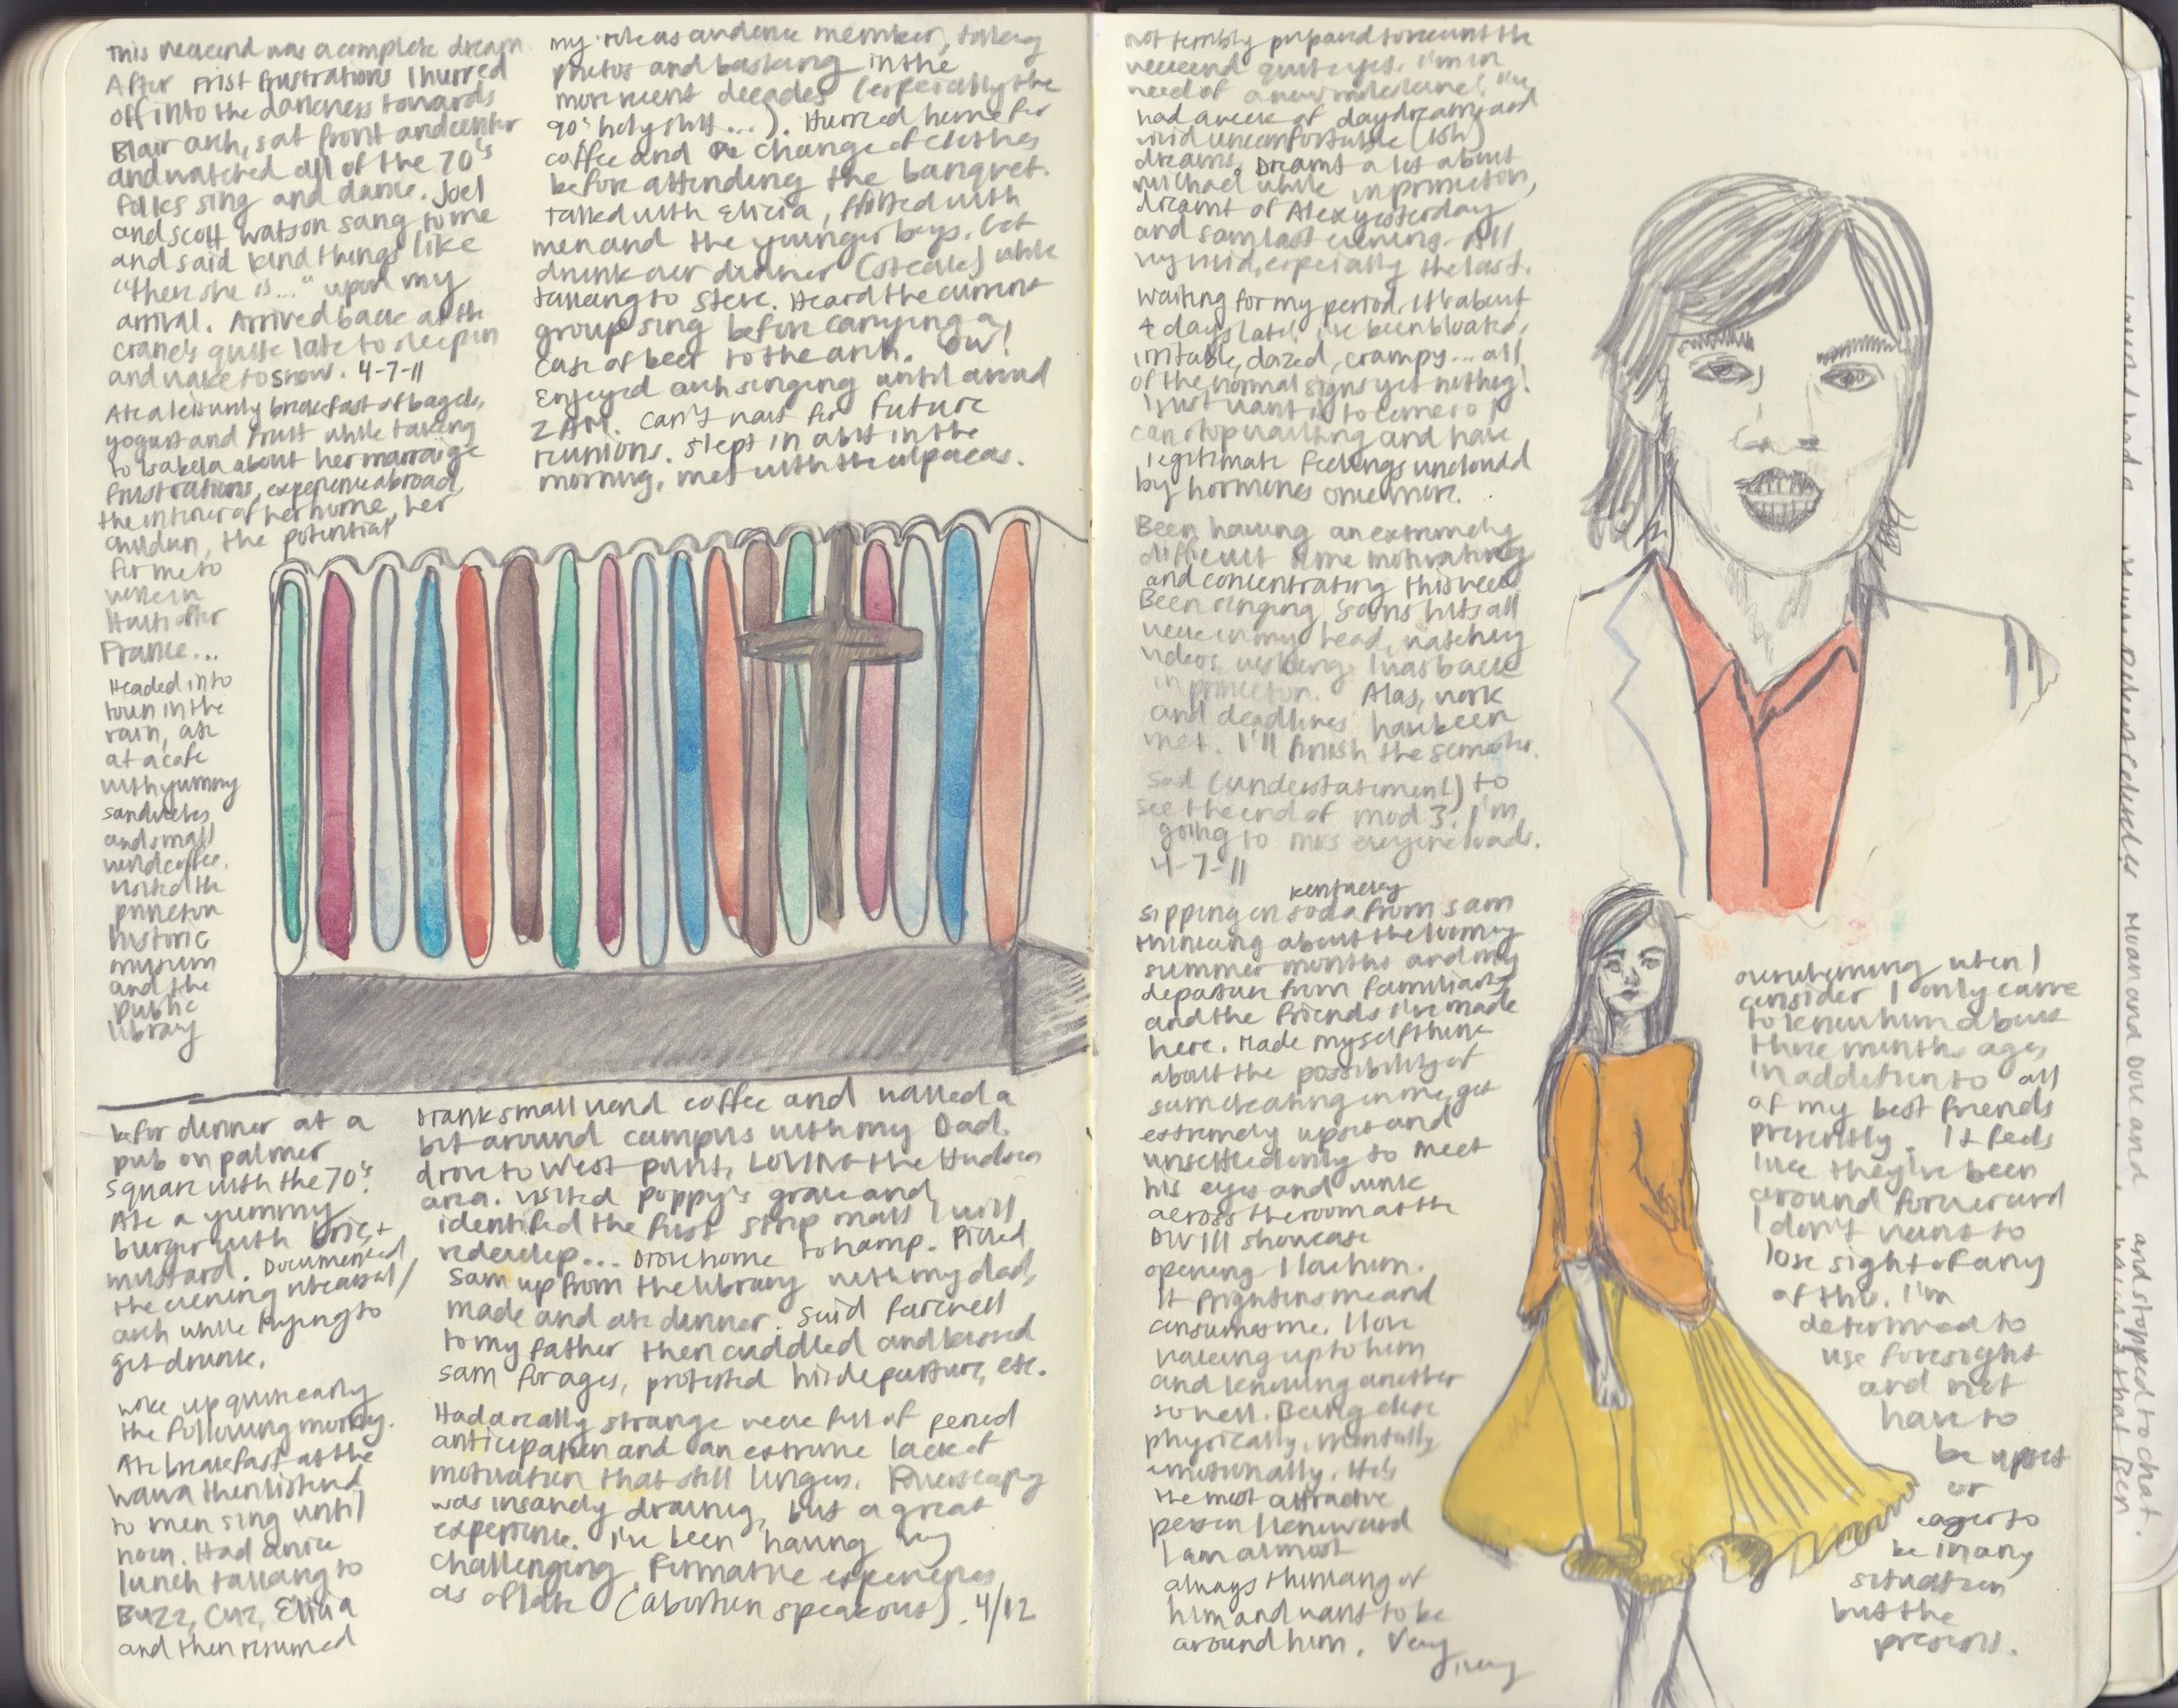 This weekend was a complete dream
After Frist frustrations I hurried
off into the darkness towards
Blair arch, sat front and center
and watched all of the 70's
folks sing and dance. Joel
and Scott Watson sang to me
and said kind things like
"there she is..." upon my
arrival. Arrived back at the
Crane's quite late to sleep in
and wake to snow. 4-7-11
Ate a leisurely breakfast of bagels,
yogurt and fruit while talking
to Isabela about her marraige
frustrations, experience abroad,
the interior of her home, her
children, the potential
for me to
work in
Haiti after
France...
Headed into
town in the
rain, ate
at a cafe
with yummy
sandwiches
and small
world coffee.
Visited the
princeton
historic
museum
and the
public
library
before dinner at a
pub on palmer
square with the 70's.
Ate a yummy
burger with brie +
mustard. Documented
the evening rehearsal/
arch while trying to
get drunk.
Woke up quite early
the following morning.
Ate breakfast at the
Wawa then listened
to men sing until
noon. Had a nice
lunch talking to
Buzz, Elicia
and then resumed
my role as audience member, taking
photos and basking in the
more recent decades (especially the
90's holy shit...). Hurried home for
coffee and a change of clothes
before attending the banquet.
Talked with Elicia, flirted with
men and the younger boys. Got
drunk over dinner (steak) while
talking to Steve. Heard the current
group sing before carrying a
case of beer to the arch. OW!
Enjoyed arch singing until around
2 AM. Can't wait for future
reunions. Slept in a bit in the
morning, met with the alpacas.
Drank small world coffee and walked a
bit around campus with my Dad.
drove to West point, LOVING the Hudson
area. Visited poppy's grave and
identified the first strip mall I will
redevelop... Drove home to hamp. Picked
Sam up from the library with my dad,
made and ate dinner. Said farewell
to my father then cuddled and kissed
Sam for ages, protested his departure, etc.
Had a really strange week full of period
anticipation and an extreme lack of
motivation that still lingers.
was insanely draining, but a great
experience. I've been having very
challenging, formative experiences
as of late (abortion speakout). 4/12
not terribly prepared to recount the
weekend quite yet. I'm in
need of a new moleskine! I've
had a week of daydreams and
vivid uncomfortable (ish)
dreams. Dreamt a lot about
Michael while in princeton,
dreamt of Alex yesterday
and Sam last evening - All
very vivid, especially the last.
Waiting for my period, it's about
4 days late! I've been bloated,
irritable, dazed, crampy... all
of the normal signs yet nothing!
I just want it to come so I
can stop waiting and have
legitimate feelings unclouded
by hormones once more.
Been having an extremely
difficult time motivating
and concentrating this week
Been singing Sons hits all
week in my head, watching
videos, wishing I was back
in princeton. Alas, work
and deadlines have been
met. I'll finish the semester.
Sad (understatement) to
see the end of mod 3. I'm
going to miss everyone loads.
4-7-11
Kentucky
Sipping on soda from Sam
thinking about the looming
summer months and my
departure from familiarity
and the friends I've made
here. Made myself think
about the possibility of
Sam cheating on me, got
extremely upset and
unsettled only to meet
his eyes and wink
across the room at the
DIV III showcase
opening. I love him.
It frightens me and
consumes me. I love
waking up to him
and knowing another
so well. Being close
physically, mentally
emotionally. He's
the most attractive
person I know and
I am almost
always thinking of
him and want to be
around him. Very
very
overwhelming when I
consider I only came
to know him about
three months ago,
in addition to all
of my best friends
presently. It feels
like they've been
around forever and
I don't want to
lose sight of any
of this. I'm
determined to
use foresight
and not
have to
be upset
or
eager to
be in any
situation
but the
present.
and stopped to chat.